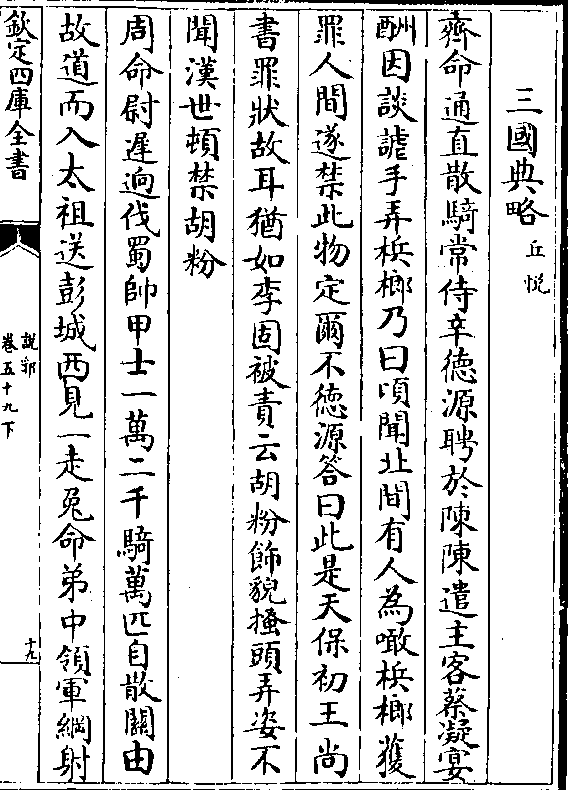 三國典略 丘悅
齊命通直散騎常侍辛德源聘於陳陳遣主客蔡凝宴
酬因談謔手弄檳榔乃曰頃聞北間有人為噉檳榔獲
罪人間遂禁此物定爾不德源答曰此是天保初王尚
書罪狀故耳猶如李固被責云胡粉飾貌搔頭弄姿不
聞漢世頓禁胡粉
周命尉遲逈伐蜀帥甲士一萬二千騎萬匹自散關由
故道而入太祖送彭城西見一走兔命弟中領軍綱射
欽定四庫全書
說郛
卷五十九下
十九